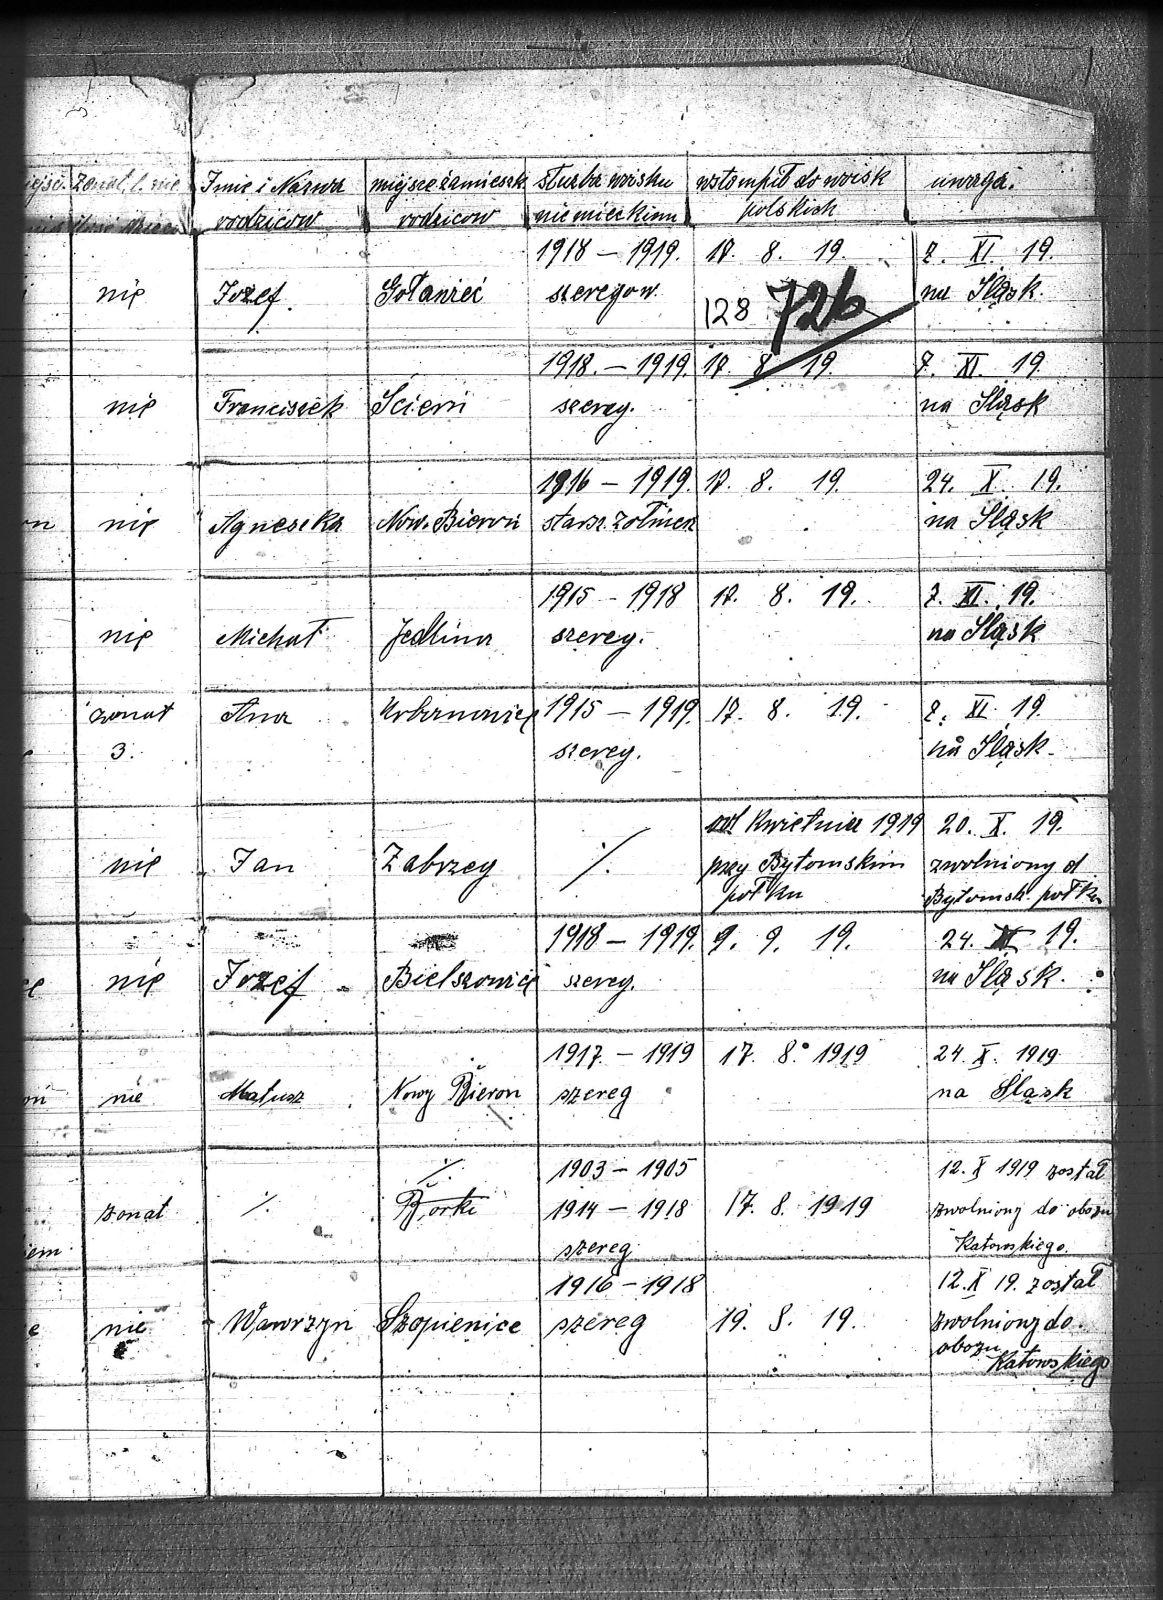 Żonat, l. nie Imie i Nazwa miejsce zamieszk. służba wojsku wstompił do wojsk uwaga.
rodziców rodzicow niemieckim polskich
1918 – 1919. 17. 8. 19. 7. XI. 19.
nie Jozef. Goławiec szeregow. na Śląsk.
128 726
1918. – 1919. 17. 8. 19. 7. XI. 19.
nie Franciszek Ścierni szereg. na Śląsk
1916 – 1919. 17. 8. 19. 24. X. 19.
nie Agneszka Now. Bieruń starsz. żołnierz na Śląsk
1915 – 1918 17. 8. 19. 7. XI. 19.
nie Michał Jedlina szereg. na Śląsk
żonat Ana Urbanowice 1915 – 1919. 17. 8. 19. 7. XI. 19.
3. szereg. na Śląsk.
od Kwietnia 1919 20. X. 19.
nie Jan Zabrzeg ·/. przy Bytomskim zwolniony d
połku Bytomsk. połku
1918 – 1919. 9. 9. 19. 24. 19.
nie Jozef Bielszowice szereg. na Śląsk.
1917. – 1919 17. 8. 1919 24. X. 1919
nie Matusz Nowy Bieron szereg na Sląsk
·/. 1903 – 1905 12. X 1919 został
żonat ·/. Borki 1914 – 1918 17. 8. 1919 zwolniony do obozu
iem. szereg Katowskiego.
1916 – 1918 12. X 19. został
nie Wawrzyn Szopienice szereg 19. 8. 19. zwolniony do
obozu
Katowskiego